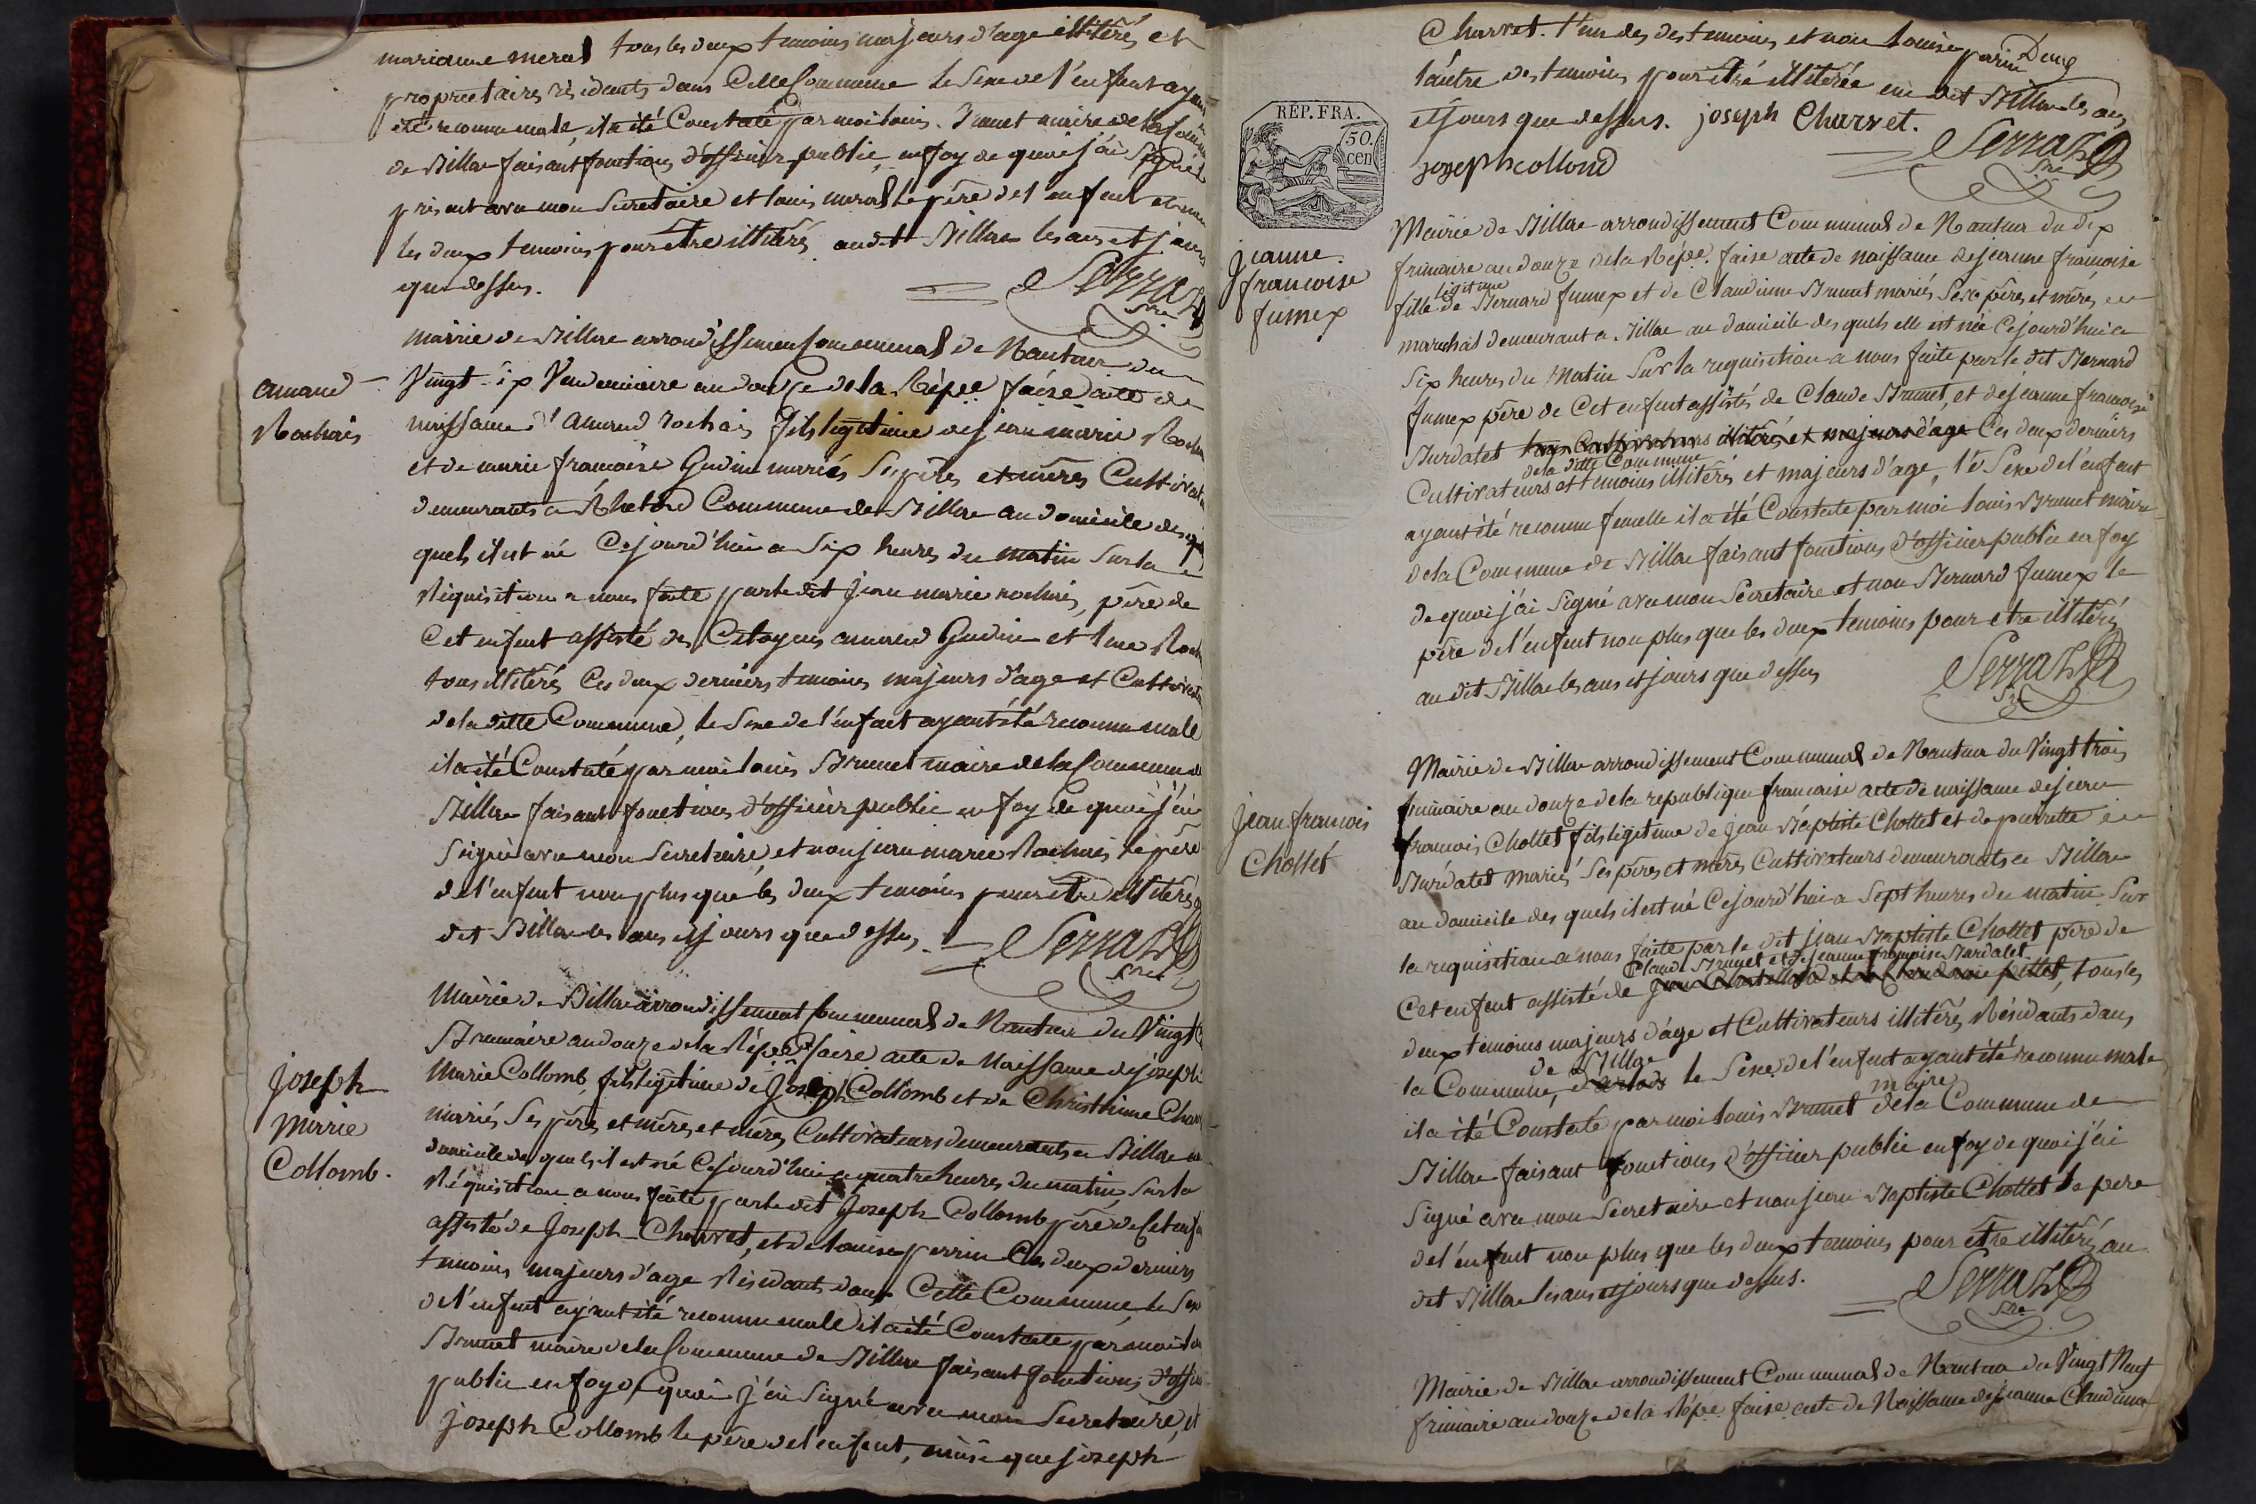 marianne meral tous les deux temoins majeurs d'age illitérés et
propriétaires résidants dans Cette Commune le Sexe de l'enfant ayant
été reconnu male, il a été Constaté par moi Louis Brunet maire de la Commune
de Billac faisant fonctions d'officier public, en foy de quoi j'ai Signé à
présent avec mon Secretaire et louis meral le père de l'enfant et non
les deux temoins pour être illitérés audit Billac les ans et jours
que dessus.
Serraz
Sre
Mairie de Billac arrondissement Communal de Nantua du
amand
Rochais
Vingt Six Vendemiaire an douze de la Répe. faise acte de
naissance d'amand rochais fils légitime de jean marie Rochais
et de marie francoise Gudin mariés Ses pères et mères Cultivateurs
demeurants a Commune de Billac au domicile des
quels il est né Cejourd'hui a Six heures du matin Sur la
Réquisition a nous faite par le dit jean marie rochais, père de
Cet enfant assisté des Citoyens amand Gudin et
tous illitérés Ces deux derniers temoins majeurs d'age et Cultivateurs
de la ditte Commune, le Sexe de l'enfant ayant été reconnu male
il a été Constaté par moi Louis Brunet maire de la Commune de
Billac faisant fonctions d'officier public en foy de quoi j'ai
Signé avec mon Secretaire et non jean marie Rochais le père
de l'enfant non plus que les deux temoins pour être illitérés au
dit Billac les ans et jours que dessus.
Serraz
Sre
Mairie de Billac arrondissement Communal de Nantua du Vingt
Brumaire an douze de la Répe. faise acte de Naissance de joseph
joseph
Marie
Collomb.
Marie Collomb, fils légitime de Joseph Collomb et de Christhine
mariés Ses pères et mères et mères Cultivateurs demeurants a Billac au
domicile des quels il est né Cejourd'hui a quatre heures du matin Sur la
Réquisition a nous faite par le dit Joseph Collomb père de Cet enfant
assisté de Joseph Charvet, et de louise perrin Ces deux derniers
temoins majeurs d'age Résidants dans Cette Commune le Sexe
de l'enfant ayant été reconnu male il a été Constaté par moi Louis
Brunet maire de la Commune de Billac faisant fonctions d'officier
public en foy de quoi j'ai Signé avec mon Secretaire, et
joseph Collomb le père de l'enfant, ainsi que joseph
Charvet. l'un des des temoins et non louise perrin
l'autre des temoins pour être illitérée au dit Billac les ans
et jours que dessus. joseph Charvet.
Serraz
Sre
joseph collomb
REP. FRA.
50.
cen
jeanne
francoise
fumex
Mairie de Billac arrondissement Communal de Nantua du dix
frimaire an douze de la Répe. faise acte de naissance de jeanne francoise
fille légitime de Bernard fumex et de Claudinne Brunet mariés Ses pères et mères,
marechal demeurant a Billac au domicile des quels elle est née Cejourd'hui a
Six heures du Matin Sur la requisition a nous faite par le dit Bernard
fumex père de Cet enfant assistés de Claude Brunet, et de jeanne francoise
Burdatet tous Cultivateurs illitérés et majeurs d'age Ces deux derniers
de la ditte Commune
Cultivateurs et temoins illitérés et majeurs d'age, le Sexe de l'enfant
ayant été reconnu femelle il a été Constaté par moi louis Brunet maire
de la Commune de Billac faisant fonctions d'officier public en foy
de quoi j'ai Signé avec mon Secretaire et non Bernard fumex le
père de l'enfant non plus que les deux temoins pour etre illitérés
au dit Billac les ans et jours que dessus
Serraz
Sre
jean francois
Chollet
Mairie de Billac arrondissement Communal de Nantua du Vingt trois
frimaire an douze de la republique francaise acte de naissance de jean
francois Chollet fils légitime de jean Baptiste Chollet et de pierrette
Burdatet mariés Ses pères et mères Cultivateurs demeurants a Billac
au domicile des quels il est né Cejourd'hui a Sept heures du matin Sur
la requisition a nous faite par le dit jean Baptiste Chollet père de
Claude Brunet et de jeanne francoise Burdatet
Cet enfant assisté de tous les
deux temoins majeurs d'age et Cultivateurs illitérés Résidants dans
de Billac
la Commune, le Sexe de l'enfant ayant été reconnu male
maire
il a été Constaté par moi louis Brunet de la Commune de
Billac faisant fonctions d'officier public en foy de quoi j'ai
Signé avec mon Secretaire et non jean Baptiste Chollet le pere
de l'enfant non plus que les deux temoins pour être illitérés au
dit Billac les ans et jours que dessus.
Serraz
Sre
Mairie de Billac arrondissement Communal de Nantua du Vingt Neuf
frimaire an douze de la Répe. faise acte de Naissance de jeanne Claudinne